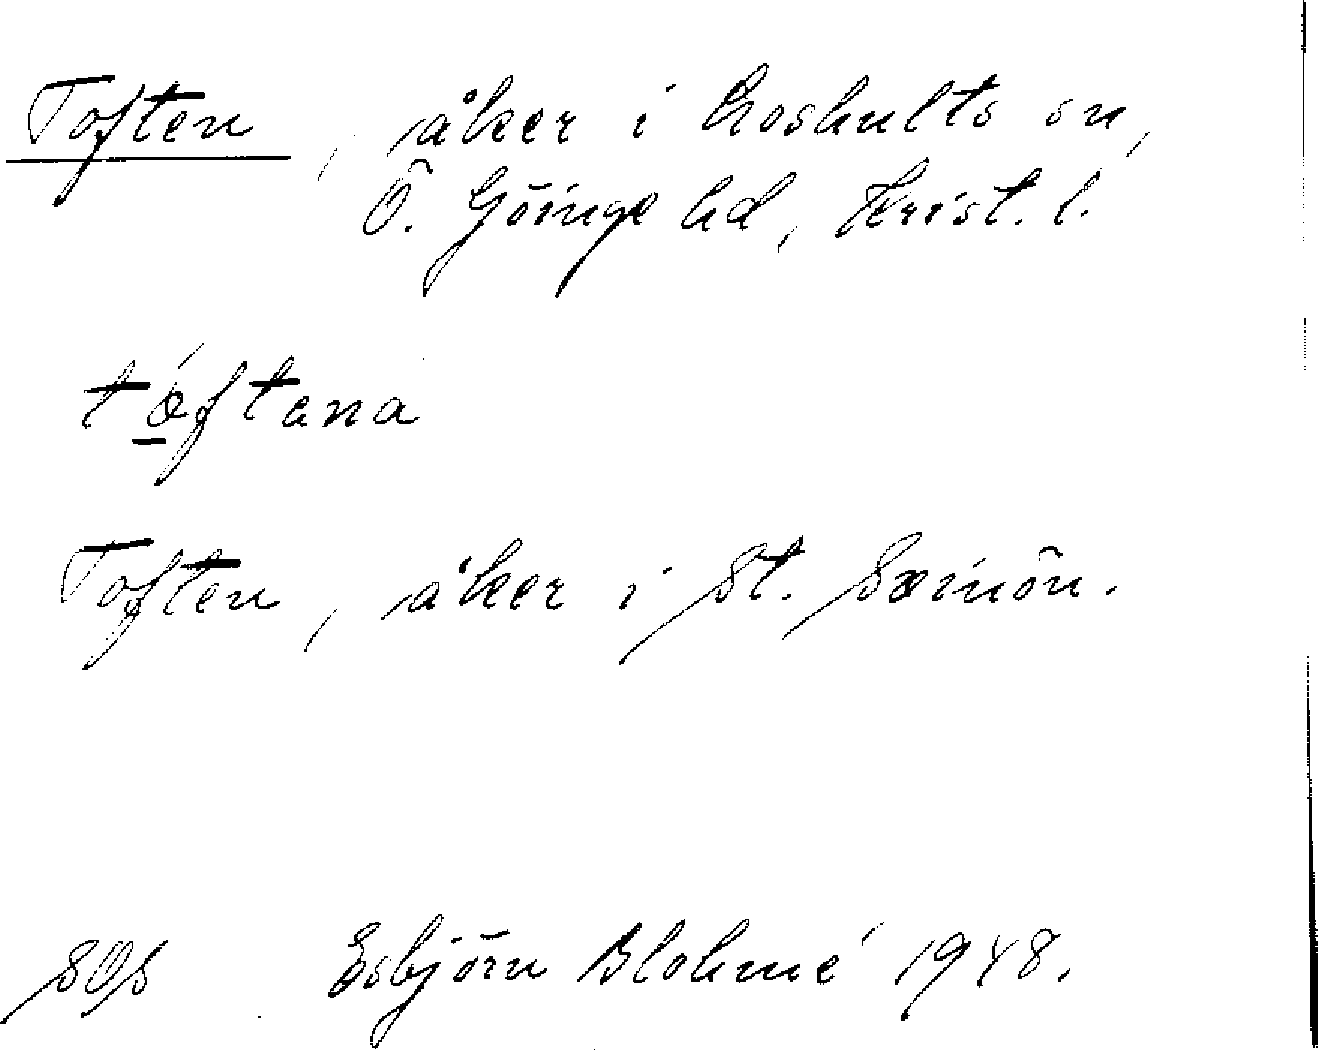 Toften, åker i Loshults sn,
Ö. Göinge hd, Krist. l.
tǿftana
Toften, åker i St.
Esbjörn Blohmé 1948.